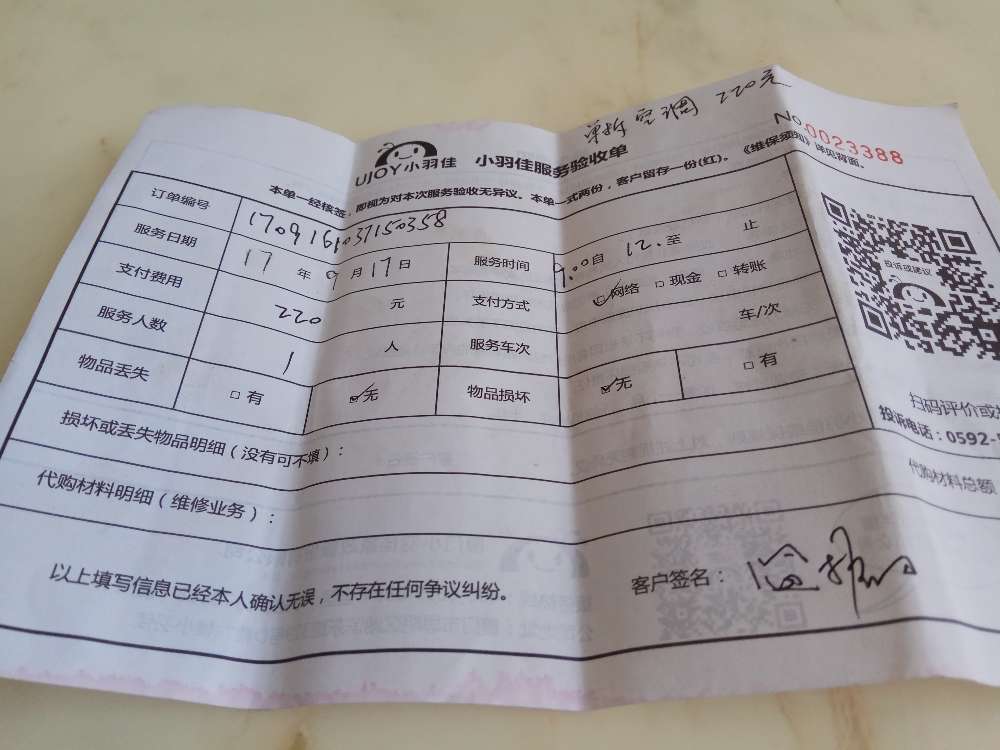 单拆空调 220元
UJOY小羽佳 小羽佳服务验收单
No.0023388
本单一经核签，即视为对本次服务验收无异议。本单一式两份，客户留存一份(红)。《维保须知》详见背面。
订单编号 1709161037150358
服务日期 17年9月17日 服务时间 9:00自 12.至 止
支付费用 220 元 支付方式 ☑网络 □现金 □转账
服务人数 1 人 服务车次 车/次
物品丢失 □有 ☑无 物品损坏 ☑无 □有
投诉或建议
扫码评价或
投诉电话：0592-
损坏或丢失物品明细（没有可不填）：
代购材料明细（维修业务）： 代购材料总额
以上填写信息已经本人确认无误，不存在任何争议纠纷。 客户签名：